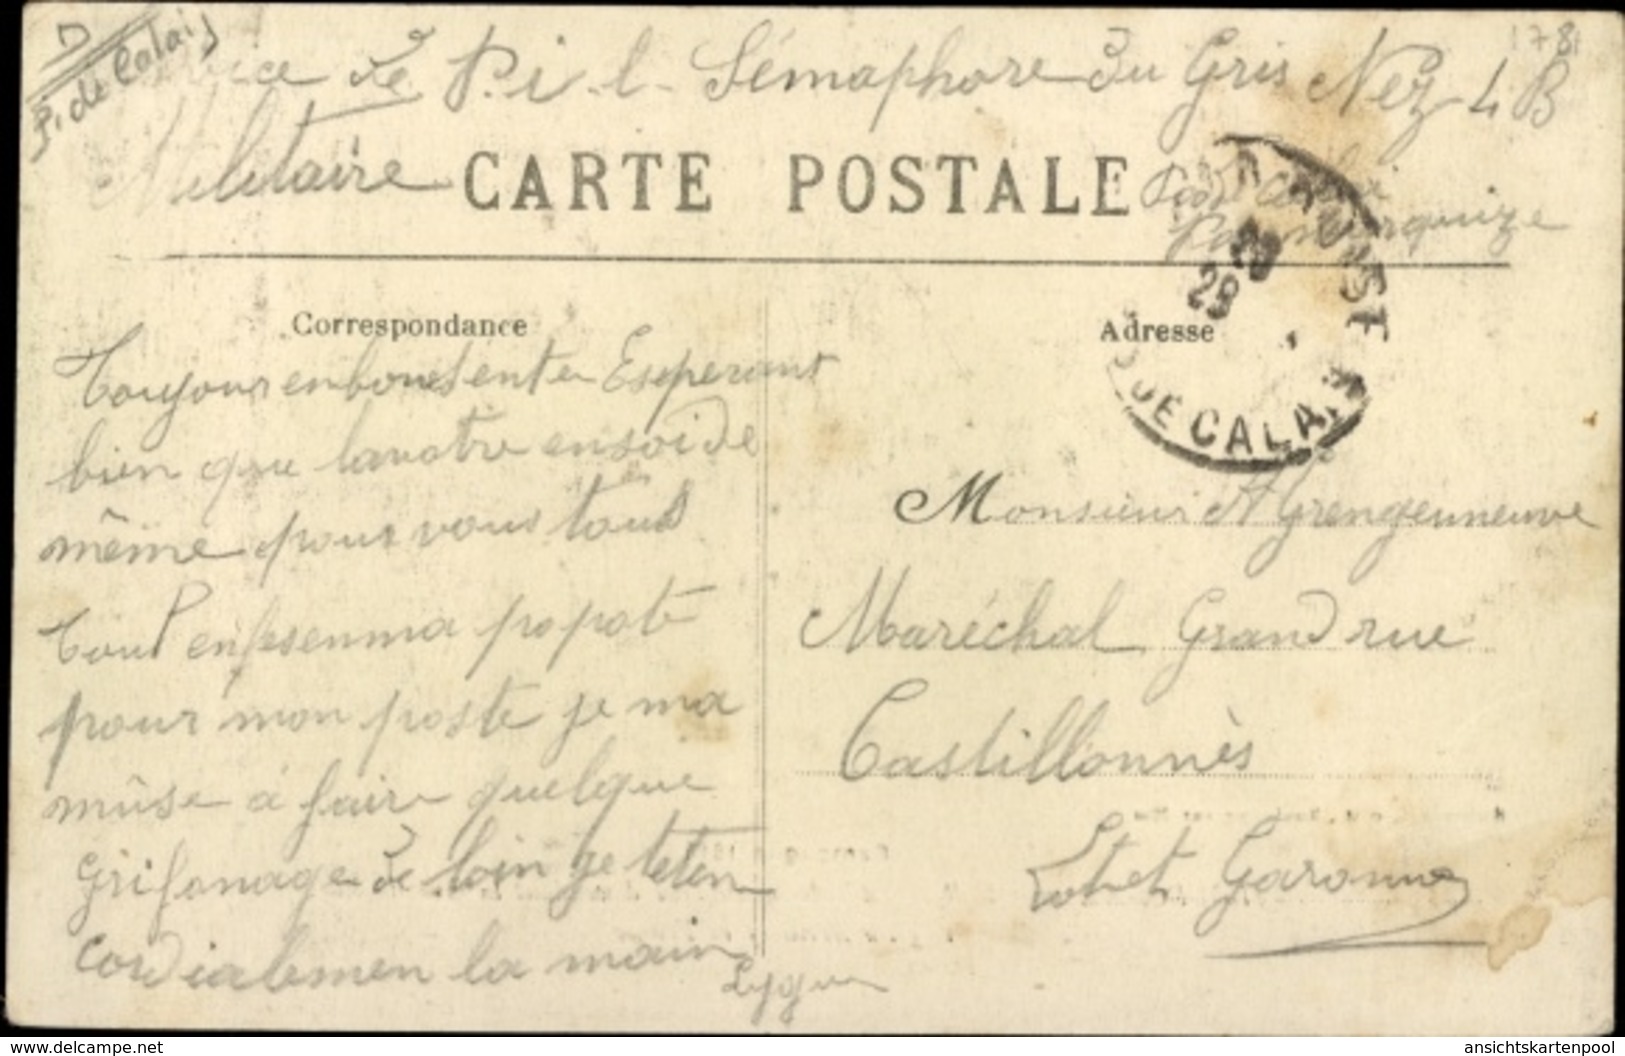 P. de Calais
178
Service de P.i.l. Sémaphore du Gris Nez 4 B
Militaire
CARTE POSTALE
Marquize
28
DE CALAIS
Correspondance
Adresse
Toujours en bonne sente Esperant
bien que la votre en soi de
même pour vous tous
Tout en fesen ma popote
pour mon poste je ma
mûse a faire quelque
Grifonage de loin je te ten
cordialemen la main
Monsieur A Grengenneuve
Maréchal Grand rue
Castillonnès
Lot et Garonne
delcampe.net
ansichtskartenpool